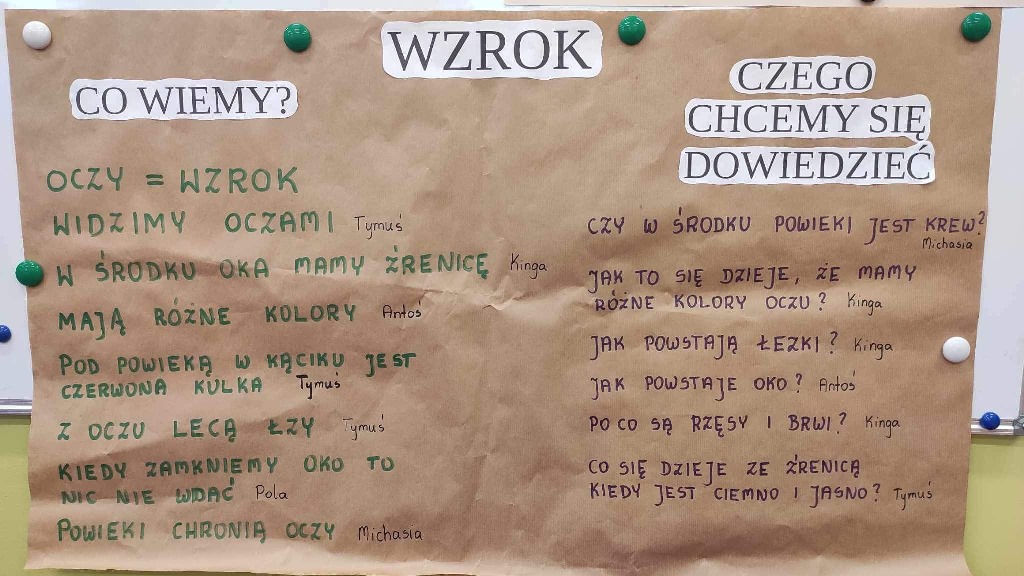 WZROK
CO WIEMY?
OCZY = WZROK
WIDZIMY OCZAMI Tymuś
W ŚRODKU OKA MAMY ŹRENICĘ Kinga
MAJĄ RÓŻNE KOLORY Antoś
POD POWIEKĄ W KĄCIKU JEST
CZERWONA KULKA Tymuś
Z OCZU LECĄ ŁZY Tymuś
KIEDY ZAMKNIEMY OKO TO
NIC NIE WDAĆ Pola
POWIEKI CHRONIĄ OCZY Michasia
CZEGO
CHCEMY SIĘ
DOWIEDZIEĆ
CZY W ŚRODKU POWIEKI JEST KREW?
Michasia
JAK TO SIĘ DZIEJE, ŻE MAMY
RÓŻNE KOLORY OCZU? Kinga
JAK POWSTAJĄ ŁEZKI? Kinga
JAK POWSTAJE OKO? Antoś
PO CO SĄ RZĘSY I BRWI? Kinga
CO SIĘ DZIEJE ZE ŹRENICĄ
KIEDY JEST CIEMNO I JASNO? Tymuś